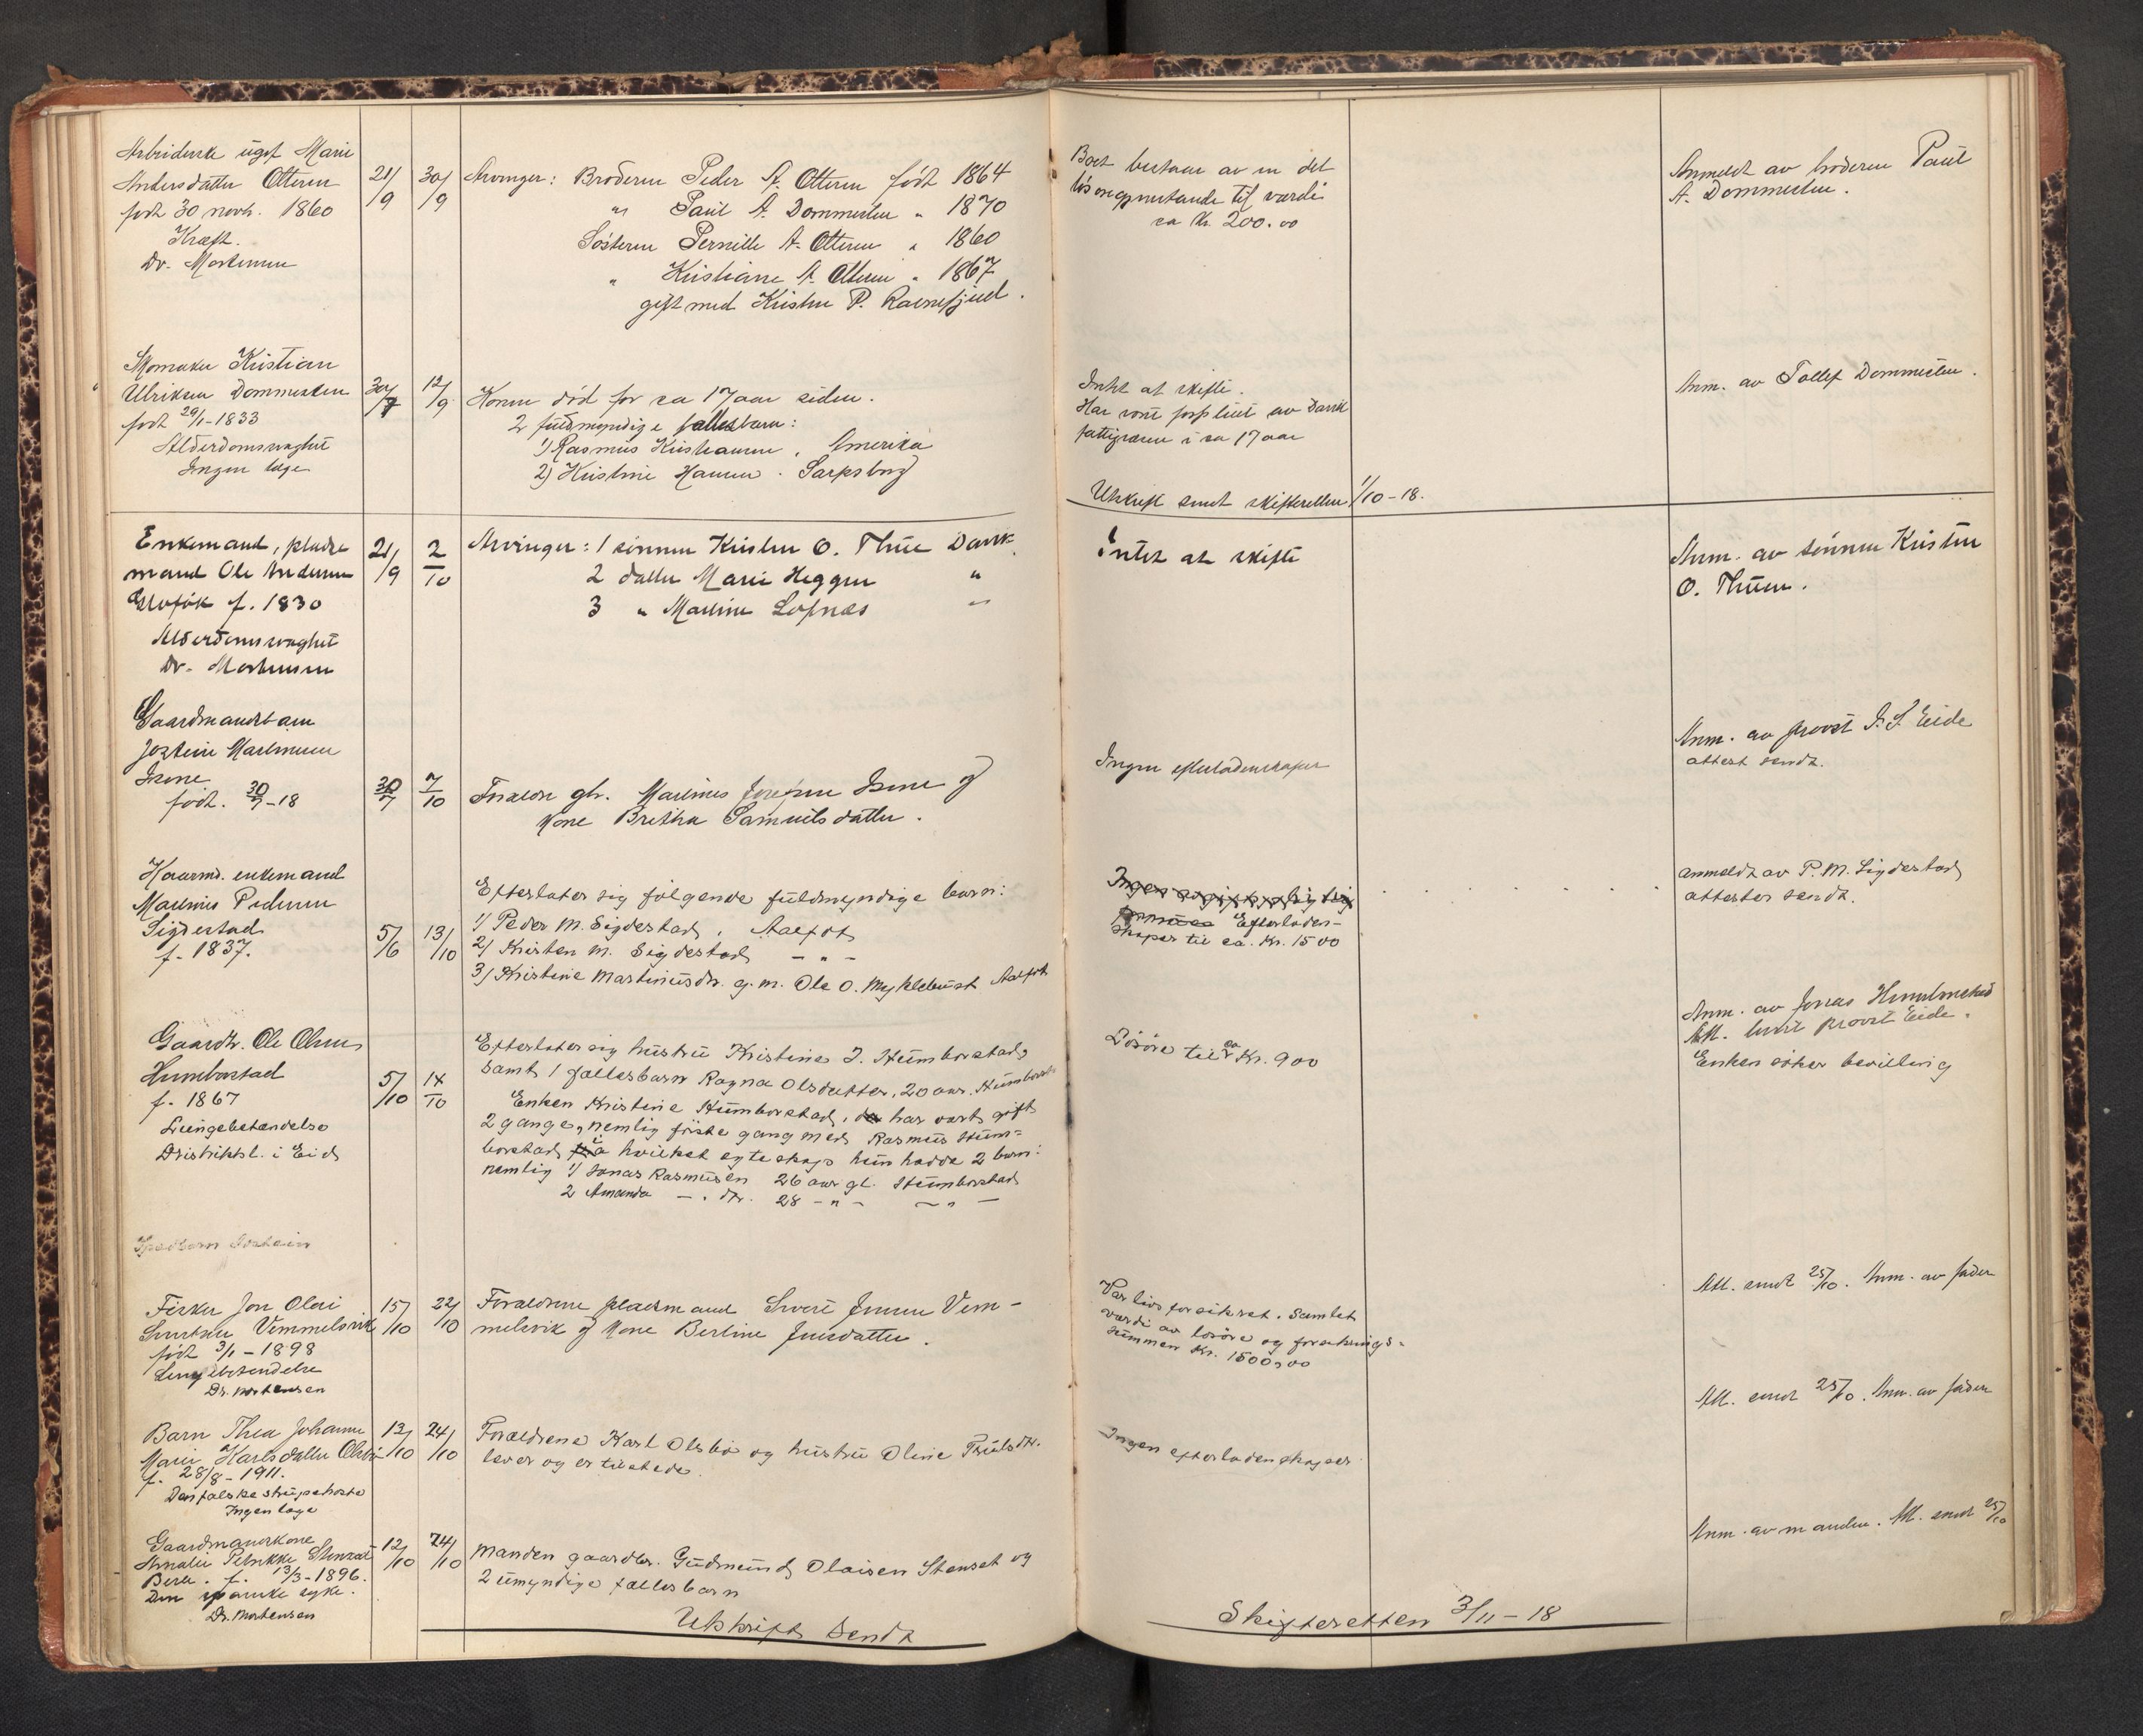 Arbeiderske ugift Marie
Andersdatter Otteren
født 30 novb. 1860
Kræft.
Dr. Mortensen
21/9
30/9
Arvinger: Broderen Peder A. Otteren født 1864
" Paul A. Dommesten " 1870
Søsteren Pernille A. Otteren " 1860
" Kristiane A. Otteren " 1867
gift med Kristen P.
Boet bestaar av en del
løsøregjenstande til værdi
ca Kr. 200.00
Anmeldt av broderen Paul
A. Dommesten.
Skomaker Kristian
Ulriksen Dommesten
født 29/1-1833
Alderdomsvaghet
Ingen læge
30/7
12/9
Konen død for ca 17 aar siden.
2 fuldmyndige fællesbarn:
1) Rasmus Kristiansen, Amerika
2) Kristine Hansen. Sarpsborg
Intet at skifte.
Har været forpleiet av Davik
fattigvæsen i ca 17 aar
Anm. av Tollef Dommesten.
Utskrift sendt skifteretten 1/10-18.
Enkemand, plads-
mand Ole Andersen
f. 1830
Alderdomsvaghet
Dr. Mortensen
21/9
2/10
Arvinger: 1 sønnen Kristen O. Thue Davik
2 datter Marie Heggen "
3 " Martine Lofnæs "
Intet at skifte
Anm. av sønnen Kristen
O. Thuen.
Gaardmandsbarn
Jostein Martinusen
Isene
født. 30/7-18
30/7
7/10
Forældre gbr. Martinus Josefsen Isene og
kone Bretha Samuelsdatter.
Ingen efterladenskaper
Anm. av provst J. S. Eide
attest sendt.
Kaarmd. enkemand
Martinus Pedersen
Sigdestad
f. 1837.
5/6
13/10
Efterlater sig følgende fuldmyndige barn:
1) Peder M. Sigdestad, Aalfot
2) Kristen M. Sigdestad - " -
3) Kristine Martinusdr. g. m. Ole O. Myklebust Aalfot
Efterladen-
skaper til ca. Kr. 1500
anmeldt av P. M. Sigdestad
attester sendt.
Gaardbr. Ole Olsen
Humborstad
f. 1867
Lungebetændelse
Distriktsl. i Eid
5/10
14/10
Efterlater sig hustru Kristine J. Humborstad,
samt 1 fællesbarn Ragna Olsdatter, 20 aar. Humborstad
Enken Kristine Humborstad, har vært gift
2 gange, nemlig første gang med Rasmus Hum-
borstad i hvilket egteskap hun hadde 2 barn:
nemlig 1) Jonas Rasmusen 26 aar gl. Humborstad
2 Amanda - " dtr. 28 - " - - " -
Løsøre til ca Kr. 900
Anm. av Jonas Humborstad
Att. sendt provst Eide.
Enken søker bevilling
Spedbarn Jostein
Fisker Jon Olai
Sivertsen Vemmelsvik
født 3/1-1898
Lungebetændelse
Dr. Mortensen
15/10
22/10
Forældrene pladsmand Sivert Jonsen Vem-
melsvik og kone Bertine Jensdatter.
Var livsforsikret. Samlet
værdi av løsøre og forsikrings-
summen Kr. 1500,00
Att. sendt 25/10. Anm. av fader
Barn Thea Johanne
Marie Karlsdatter Olsbø
f. 28/8-1911.
Den falske strupehoste
Ingen læge
13/10
24/10
Forældrene Karl Olsbø og hustru Oline Paulsdr.
lever og er tilstede.
Ingen efterladenskaper
Att. sendt 25/10. Anm. av fader
Gaardmandskone
Amalie Petrikke Stenset
Berle. f. 13/3-1896.
Den spanske syke.
Dr. Mortensen
12/10
24/10
Manden gaardbr. Gudmund Olaisen Stenset og
2 umyndige fællesbarn
Anm. av manden. Att. sendt 25/10
Utskrift sendt Skifteretten 3/11-18